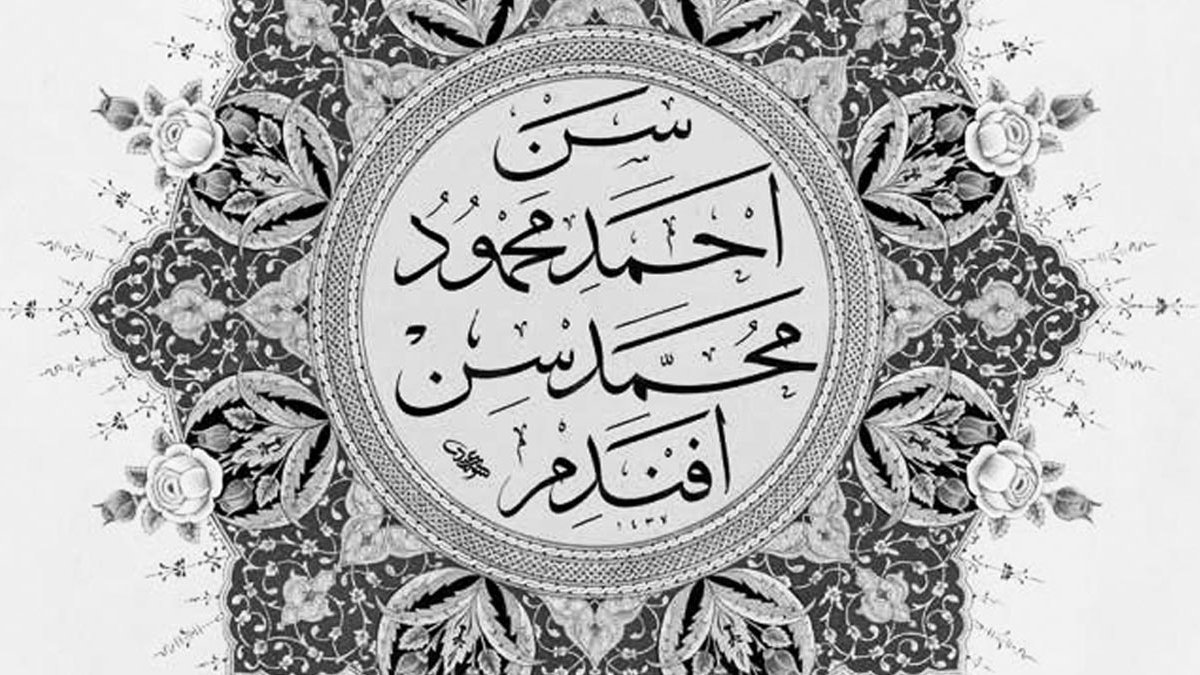 سَنْ
اَحْمَدِ مَحْمُودُ
مُحَمَّدْسِنْ
اَفَنْدِمْ
١٤٣٧